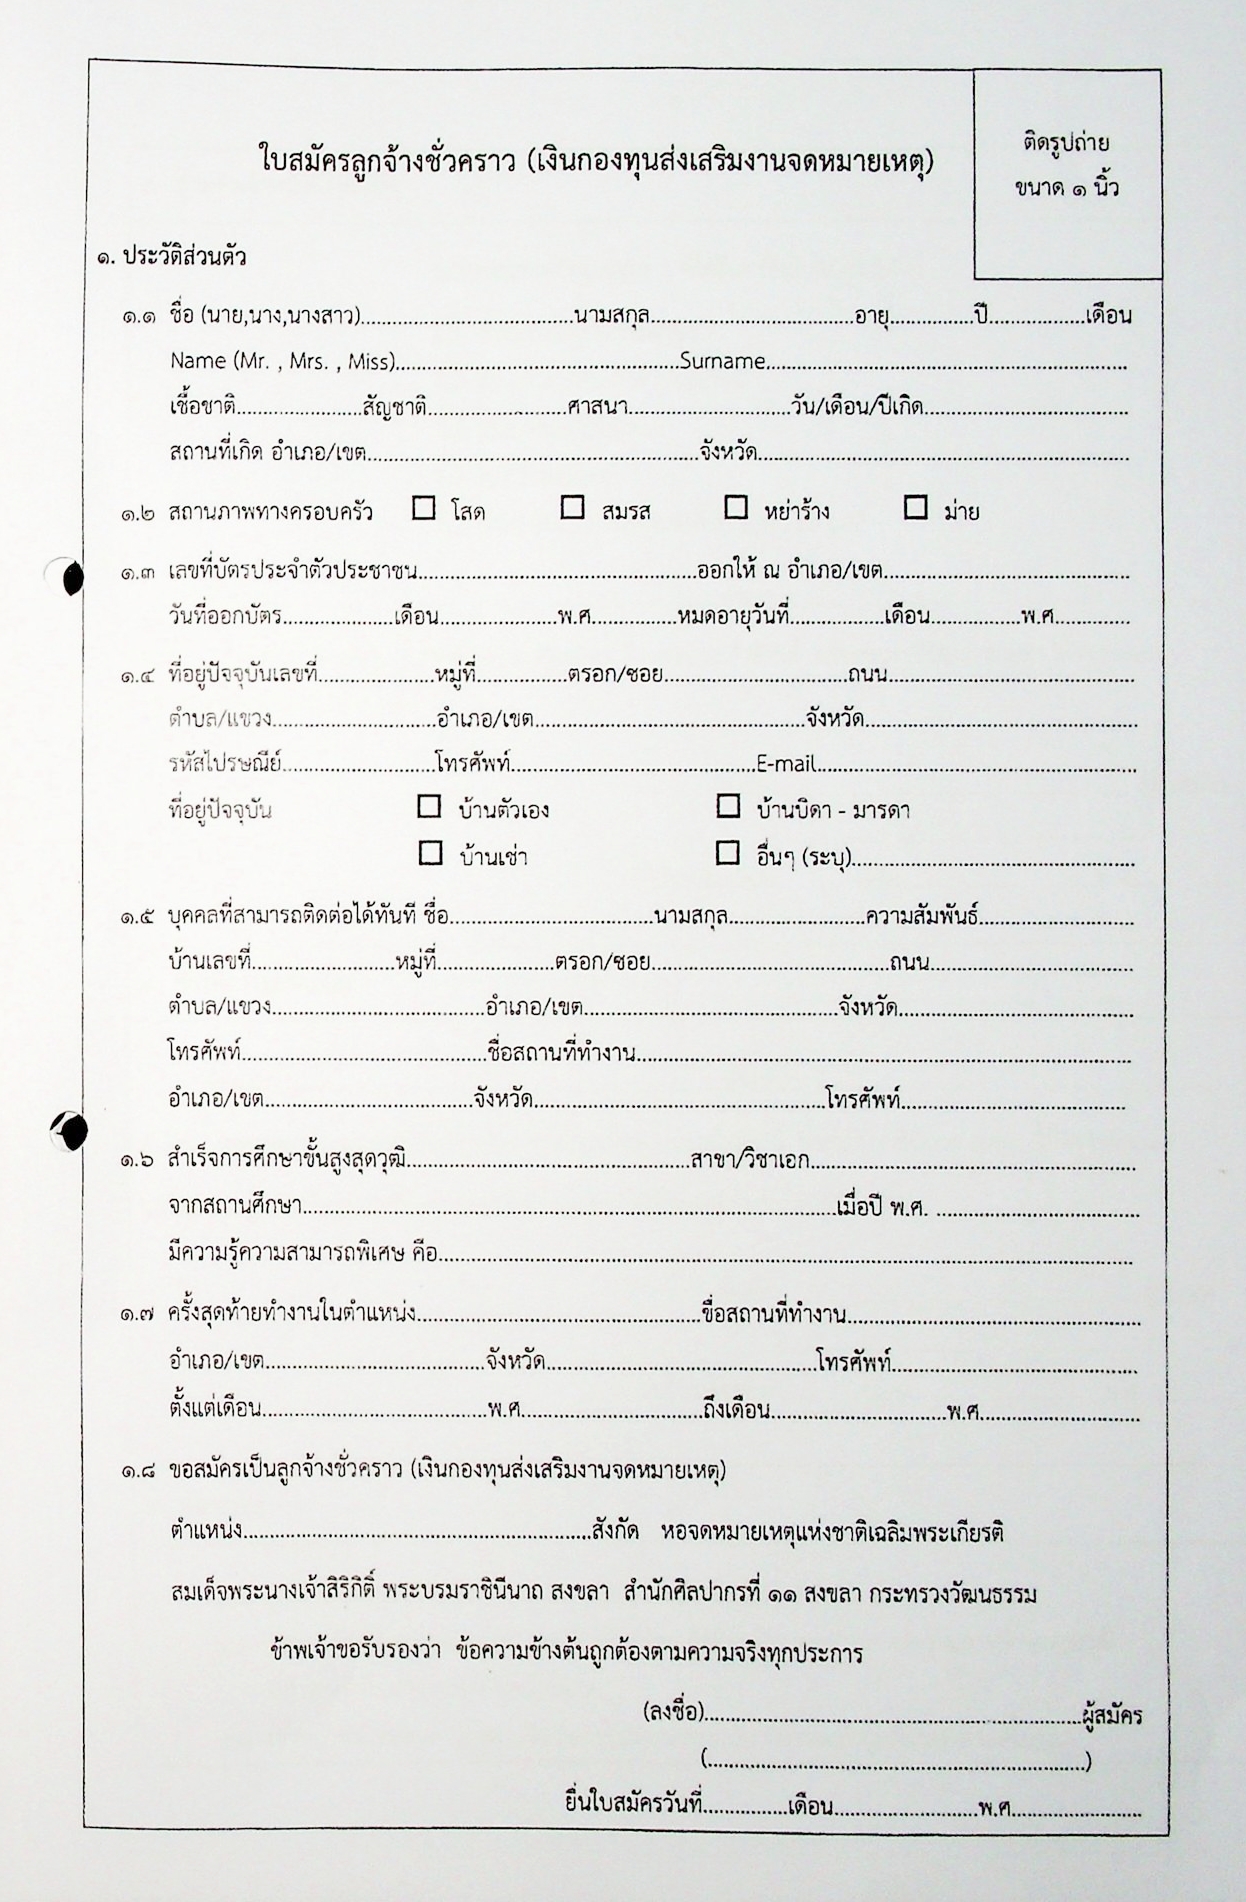 ติดรูปถ่าย
ขนาด ๑ นิ้ว
ใบสมัครลูกจ้างชั่วคราว (เงินกองทุนส่งเสริมงานจดหมายเหตุ)
๑. ประวัติส่วนตัว
๑.๑ ชื่อ (นาย,นาง,นางสาว)....................นามสกุล....................อายุ..........ปี..........เดือน
Name (Mr. , Mrs. , Miss)....................Surname....................
เชื้อชาติ..........สัญชาติ..........ศาสนา..........วัน/เดือน/ปีเกิด....................
สถานที่เกิด อำเภอ/เขต....................จังหวัด....................
๑.๒ สถานภาพทางครอบครัว ☐ โสด ☐ สมรส ☐ หย่าร้าง ☐ ม่าย
๑.๓ เลขที่บัตรประจำตัวประชาชน....................ออกให้ ณ อำเภอ/เขต....................
วันที่ออกบัตร..........เดือน..........พ.ศ..........หมดอายุวันที่..........เดือน..........พ.ศ..........
๑.๔ ที่อยู่ปัจจุบันเลขที่..........หมู่ที่..........ตรอก/ซอย....................ถนน....................
ตำบล/แขวง....................อำเภอ/เขต....................จังหวัด....................
รหัสไปรษณีย์..........โทรศัพท์....................E-mail....................
ที่อยู่ปัจจุบัน ☐ บ้านตัวเอง ☐ บ้านบิดา - มารดา
☐ บ้านเช่า ☐ อื่นๆ (ระบุ)....................
๑.๕ บุคคลที่สามารถติดต่อได้ทันที ชื่อ....................นามสกุล..........ความสัมพันธ์..........
บ้านเลขที่..........หมู่ที่..........ตรอก/ซอย....................ถนน....................
ตำบล/แขวง....................อำเภอ/เขต....................จังหวัด....................
โทรศัพท์....................ชื่อสถานที่ทำงาน....................
อำเภอ/เขต....................จังหวัด....................โทรศัพท์....................
๑.๖ สำเร็จการศึกษาขั้นสูงสุดวุฒิ....................สาขา/วิชาเอก....................
จากสถานศึกษา....................เมื่อปี พ.ศ. ....................
มีความรู้ความสามารถพิเศษ คือ....................
๑.๗ ครั้งสุดท้ายทำงานในตำแหน่ง....................ชื่อสถานที่ทำงาน....................
อำเภอ/เขต....................จังหวัด....................โทรศัพท์....................
ตั้งแต่เดือน....................พ.ศ....................ถึงเดือน....................พ.ศ....................
๑.๘ ขอสมัครเป็นลูกจ้างชั่วคราว (เงินกองทุนส่งเสริมงานจดหมายเหตุ)
ตำแหน่ง....................สังกัด หอจดหมายเหตุแห่งชาติเฉลิมพระเกียรติ
สมเด็จพระนางเจ้าสิริกิติ์ พระบรมราชินีนาถ สงขลา สำนักศิลปากรที่ ๑๑ สงขลา กระทรวงวัฒนธรรม
ข้าพเจ้าขอรับรองว่า ข้อความข้างต้นถูกต้องตามความจริงทุกประการ
(ลงชื่อ)....................ผู้สมัคร
(....................)
ยื่นใบสมัครวันที่..........เดือน....................พ.ศ....................